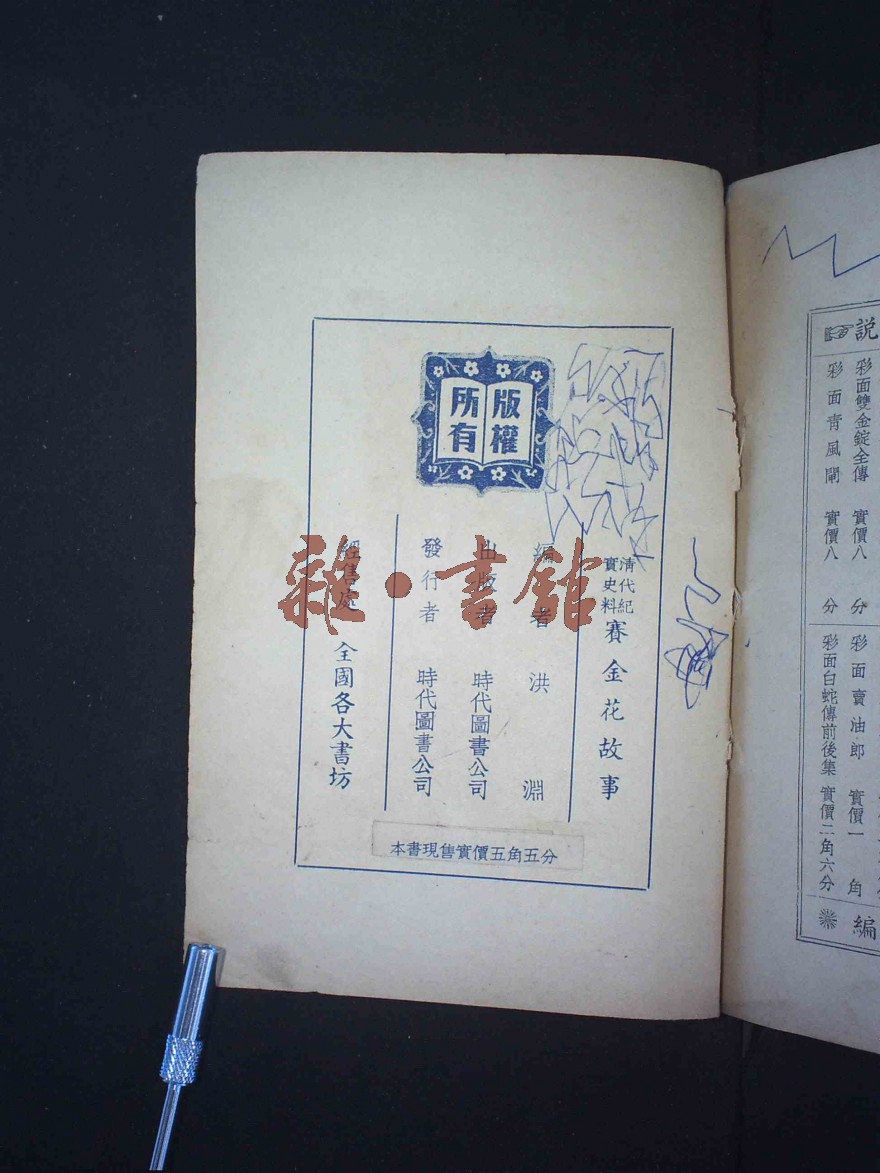 版權
所有
清代紀
實史料
賽金花故事
編者 洪淵
出版者 時代圖書公司
發行者 時代圖書公司
經售處 全國各大書坊
本書現售實價五角五分
雜·書館
說
彩面雙金錠全傳 實價八分
彩面賣油郎 實價一角
彩面青風閘 實價八分
彩面白蛇傳前後集 實價二角六分
編